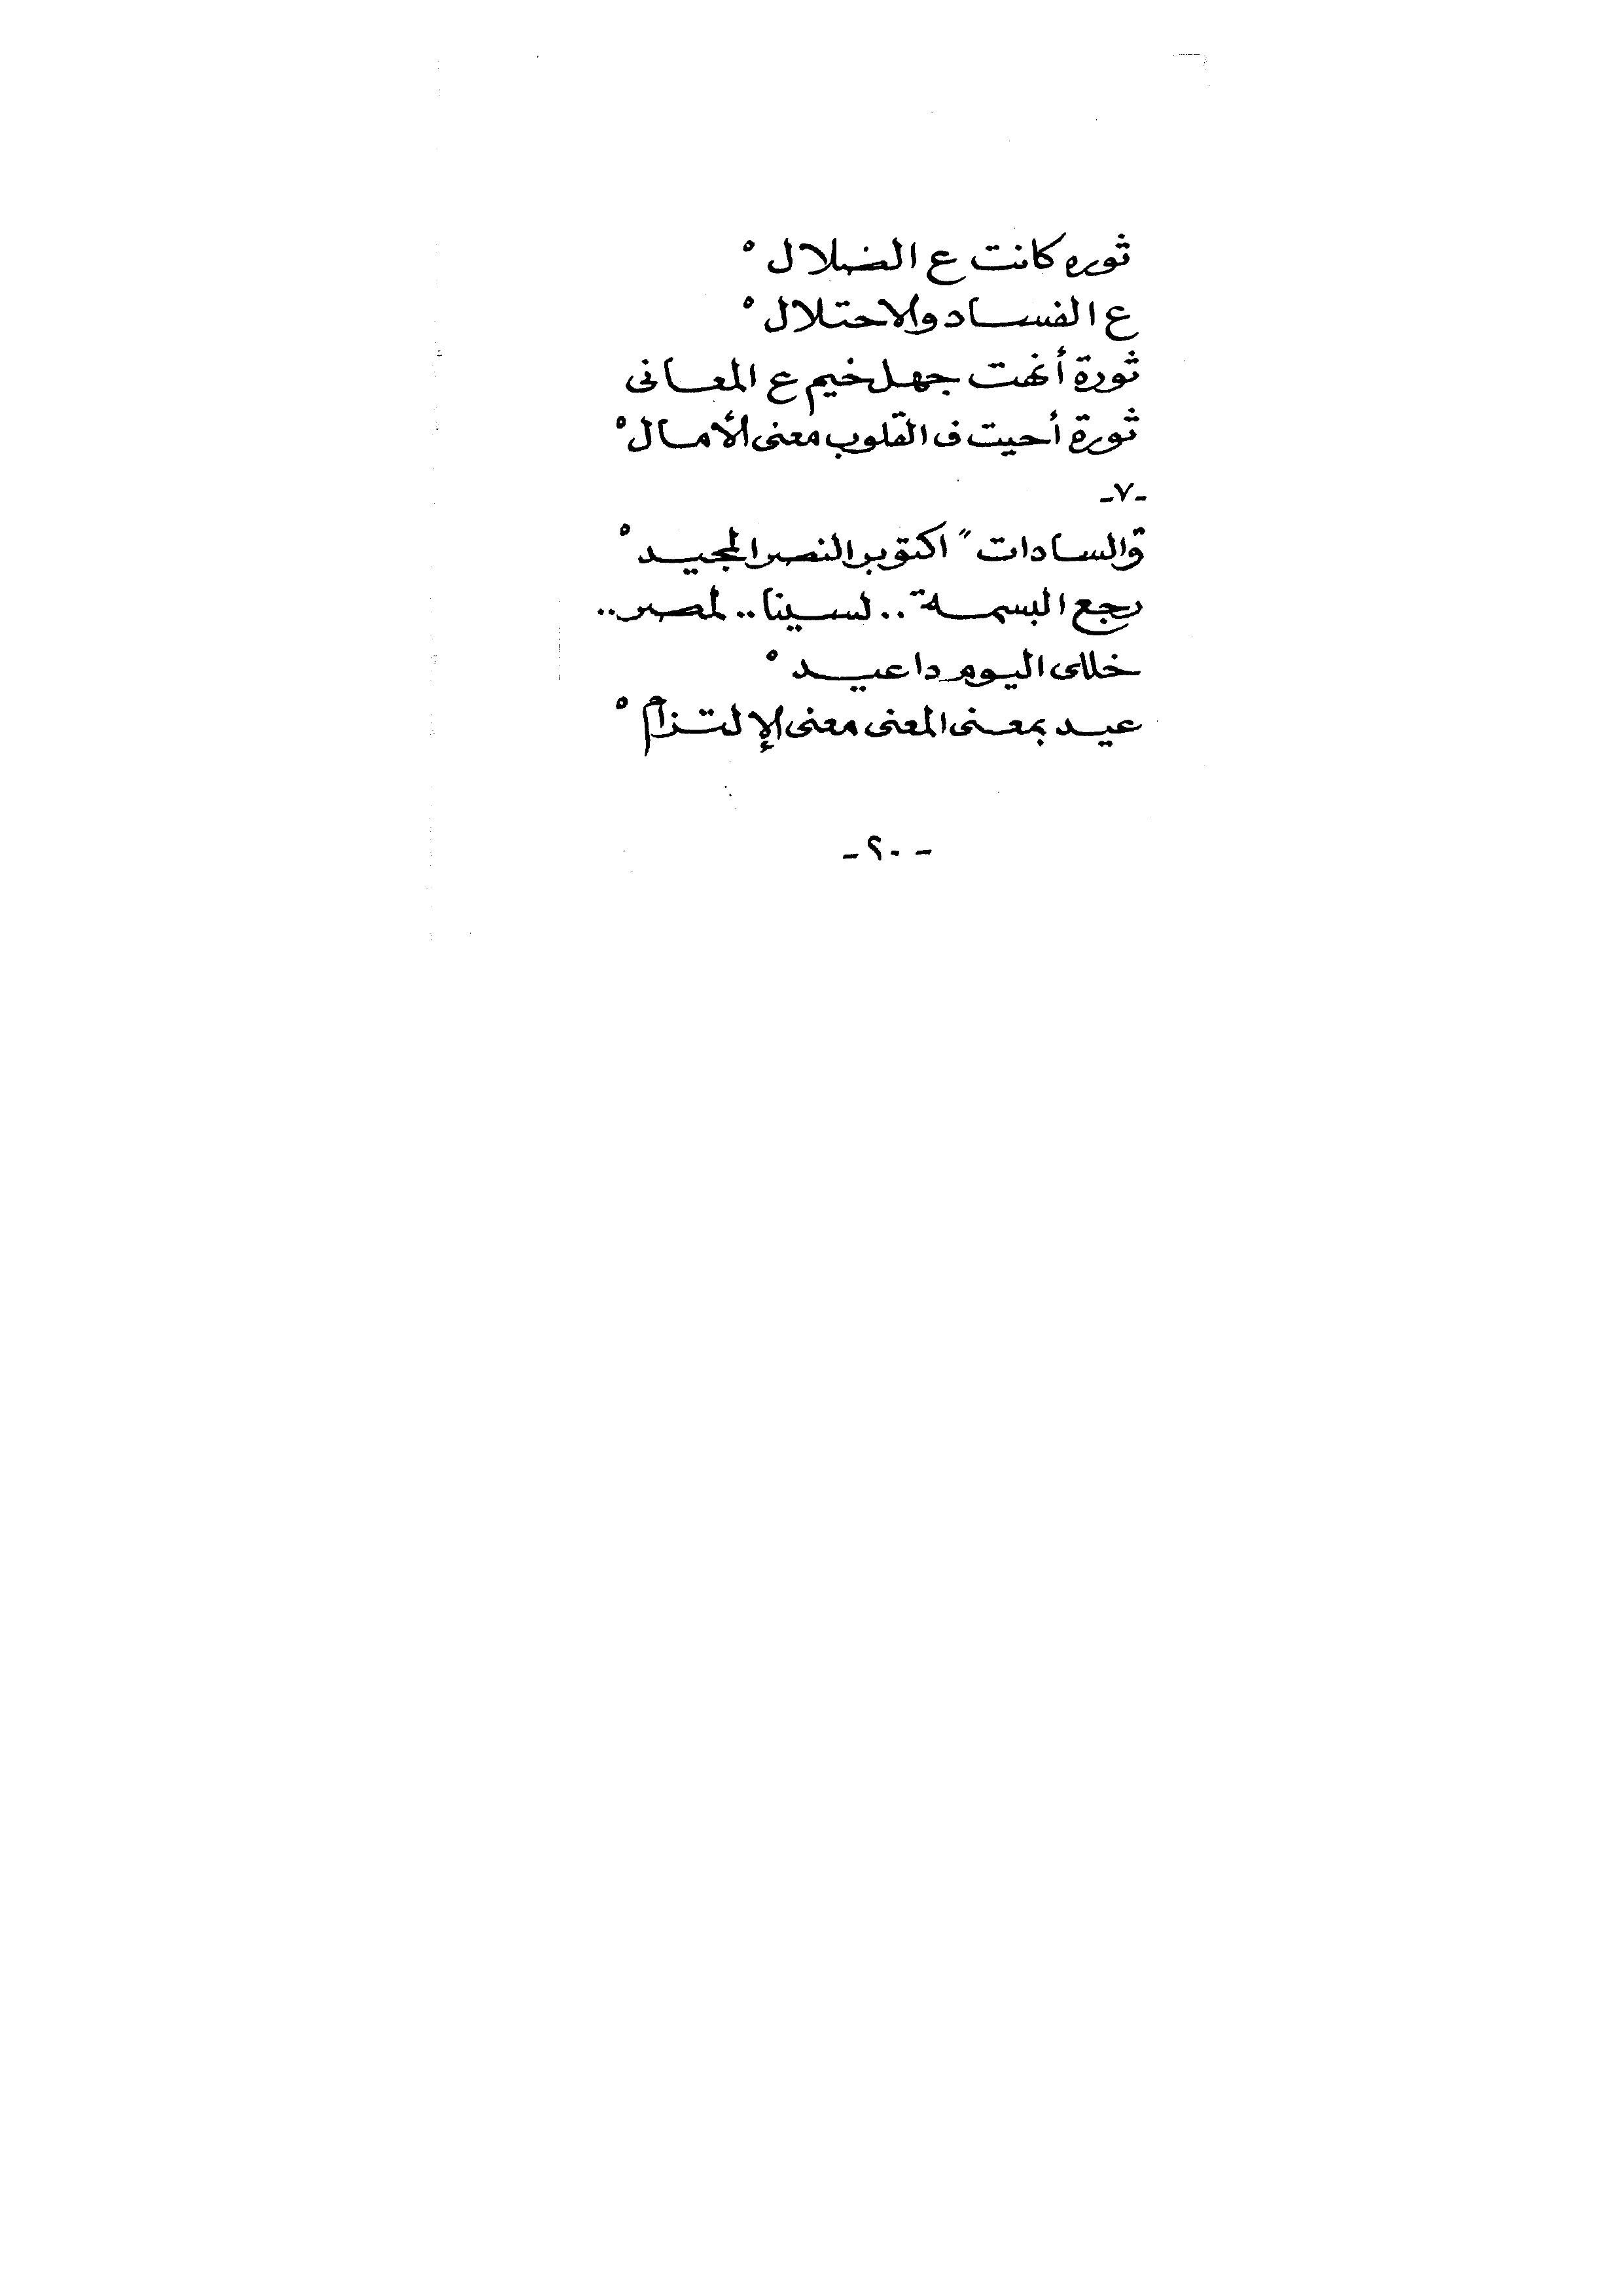 ثوره كانت ع الضلال ْ
ع الفساد والاحتلال ْ
ثورة أنهت جهل خيم ع المعانى
ثورة أحيت ف القلوب معنى الأمال ْ
-٧-
والسادات " اكتوبر النصر المجيد ْ
رجع البسمة .. لسينا .. لمصر ..
خلاى اليوم دا عيد ْ
عيد بمعنى المعنى معنى الإلتزام ْ
- ٢٠ -